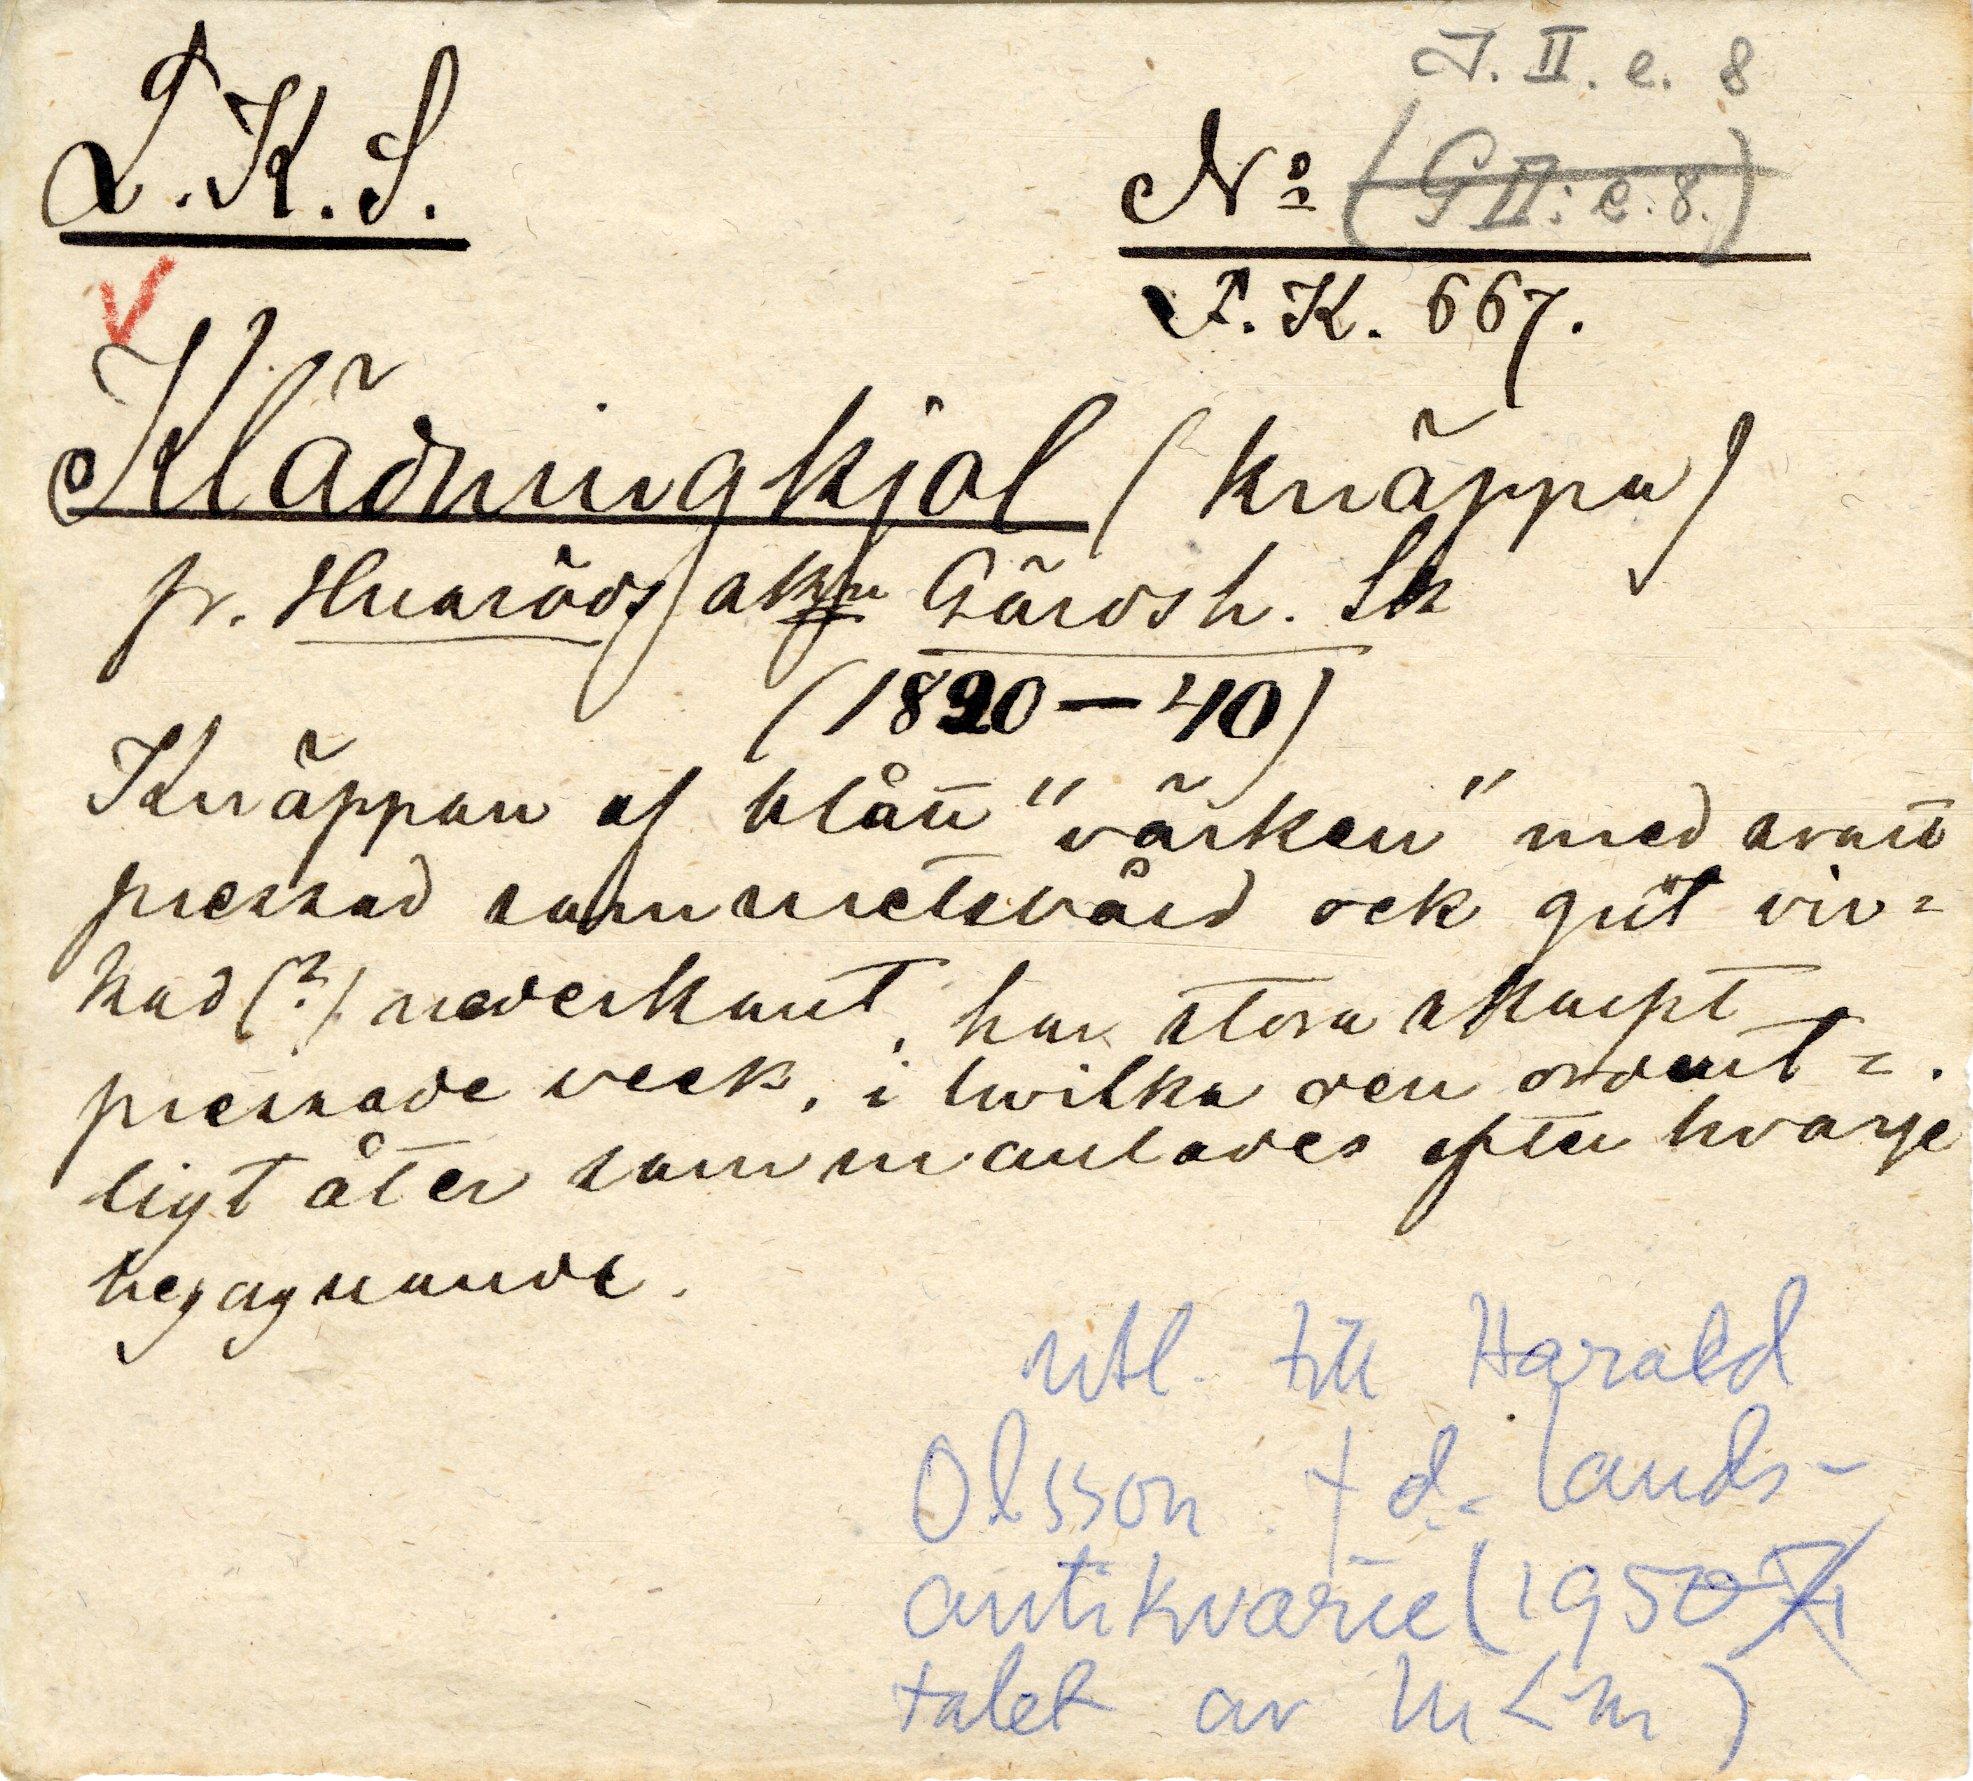 L.K.S.
J. II. e. 8
No (G II: e. 8.)
L.K. 667.
Klädningkjol (knäppa)
fr. Huaröds skn Gärdsh. Sk
(1820–40)
Knäppan af blått "värken" med svart
pressad sammetsbård ock gult vir=
kad (?) nederkant, har stora skarpt
pressade veck, i hwilka den ordent=
ligt åter sammanlades efter hvarje
begagnande.
utl. till Harald
Olsson f d. lands-
antikvarie (1950
talet av